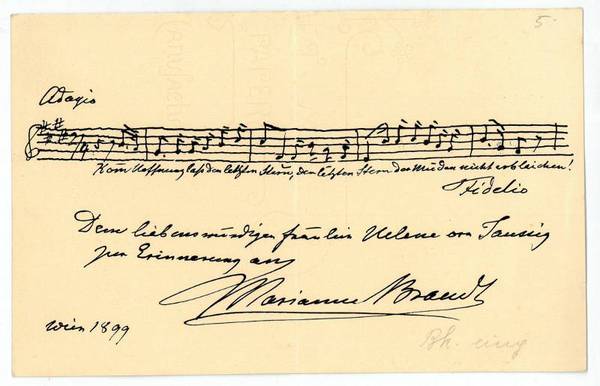 5.
Adagio
Komm Hoffnung lass den letzten Stern, den letzten Stern der Müden nicht erbleichen!
Fidelio
Dem liebenswürdigen Fräulein Helene von Taussig
zur Erinnerung an
Marianne Brandt
Wien 1899
Bk.